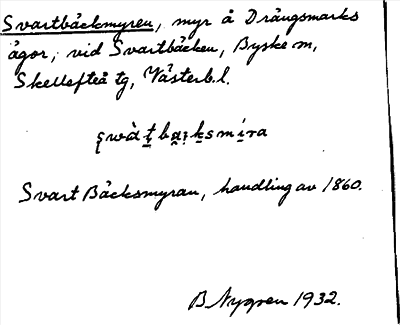 Svartbäckmyren, myr å Drängsmarks
ägor, vid Svartbäcken, Byske sn,
Skellefteå tg, Västerb. l.
Svart Bäcksmyran, handling av 1860.
B. Nygren 1932.